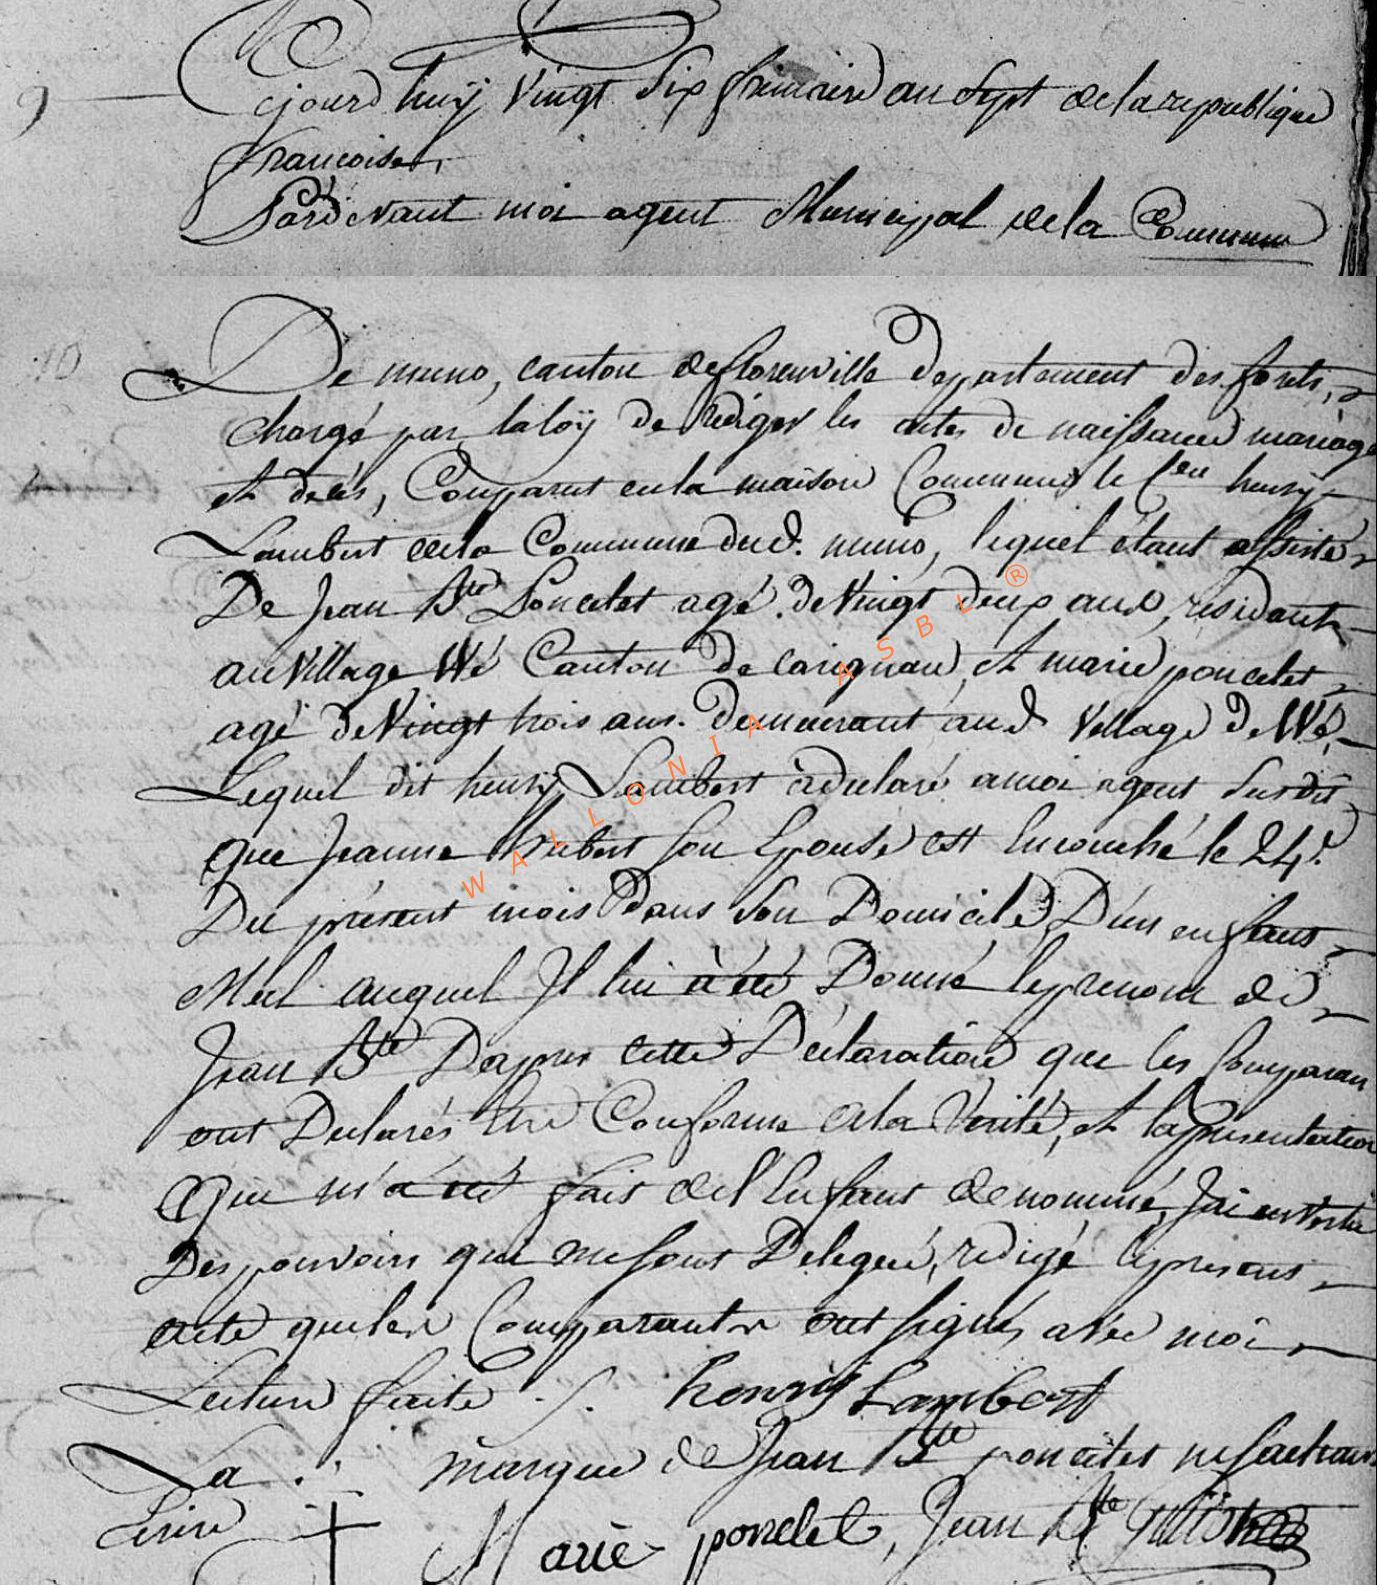 9
Cejourd'huÿ Vingt Six frimaire an Sept de la republique
francoise,
Pardevant moi agent Municipal de la Commune
10
De muno, canton de florenville Departement des forets,
chargé par la loÿ de Rediger les actes de naissance mariage
et décès, Comparut en la maison Commune le Cen henrÿ
Lambert de la Commune dud. muno, lequel étant assisté
De Jean Bte Poncelet agé de Vingt deux ans, résidant
au Village Wé Canton de carignan, et marie poncelet
agé de Vingt trois ans. Demeurant aud Village De Wé,
Lequel dit henrÿ Lambert à declaré a moi agent Susdit
que Jeanne hubert son Epouse est Encouché le 24.
Du présent mois Dans Son Domicile D'un enfans
Mal auquel Jl lui à été Donné le prenom de
Jean Bte D'apres cette Déclaration que les Comparan
ont Declarés Etre Conforme a la Vérité, et la présentation
Que m'a été fait de l'Enfant denommé, J'ai en Vertu
Des pouvoirs qui me sont Délégué, redigé le present
acte que les Comparants ont signés avec moi
Lecture faite ./. henrÿ Lambert
La marque de Jean Bte poncelet ne sachant
Ecrire +
Marie poncelet, Jean Bte
WALLONIA ASBL ®